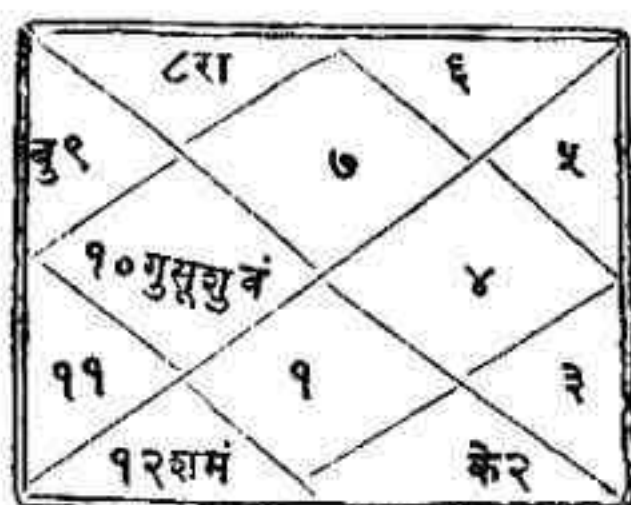 ८रा ६
बु९ ७ ५
१०गुसूशुवं ४
११ १ ३
१२शमं के२